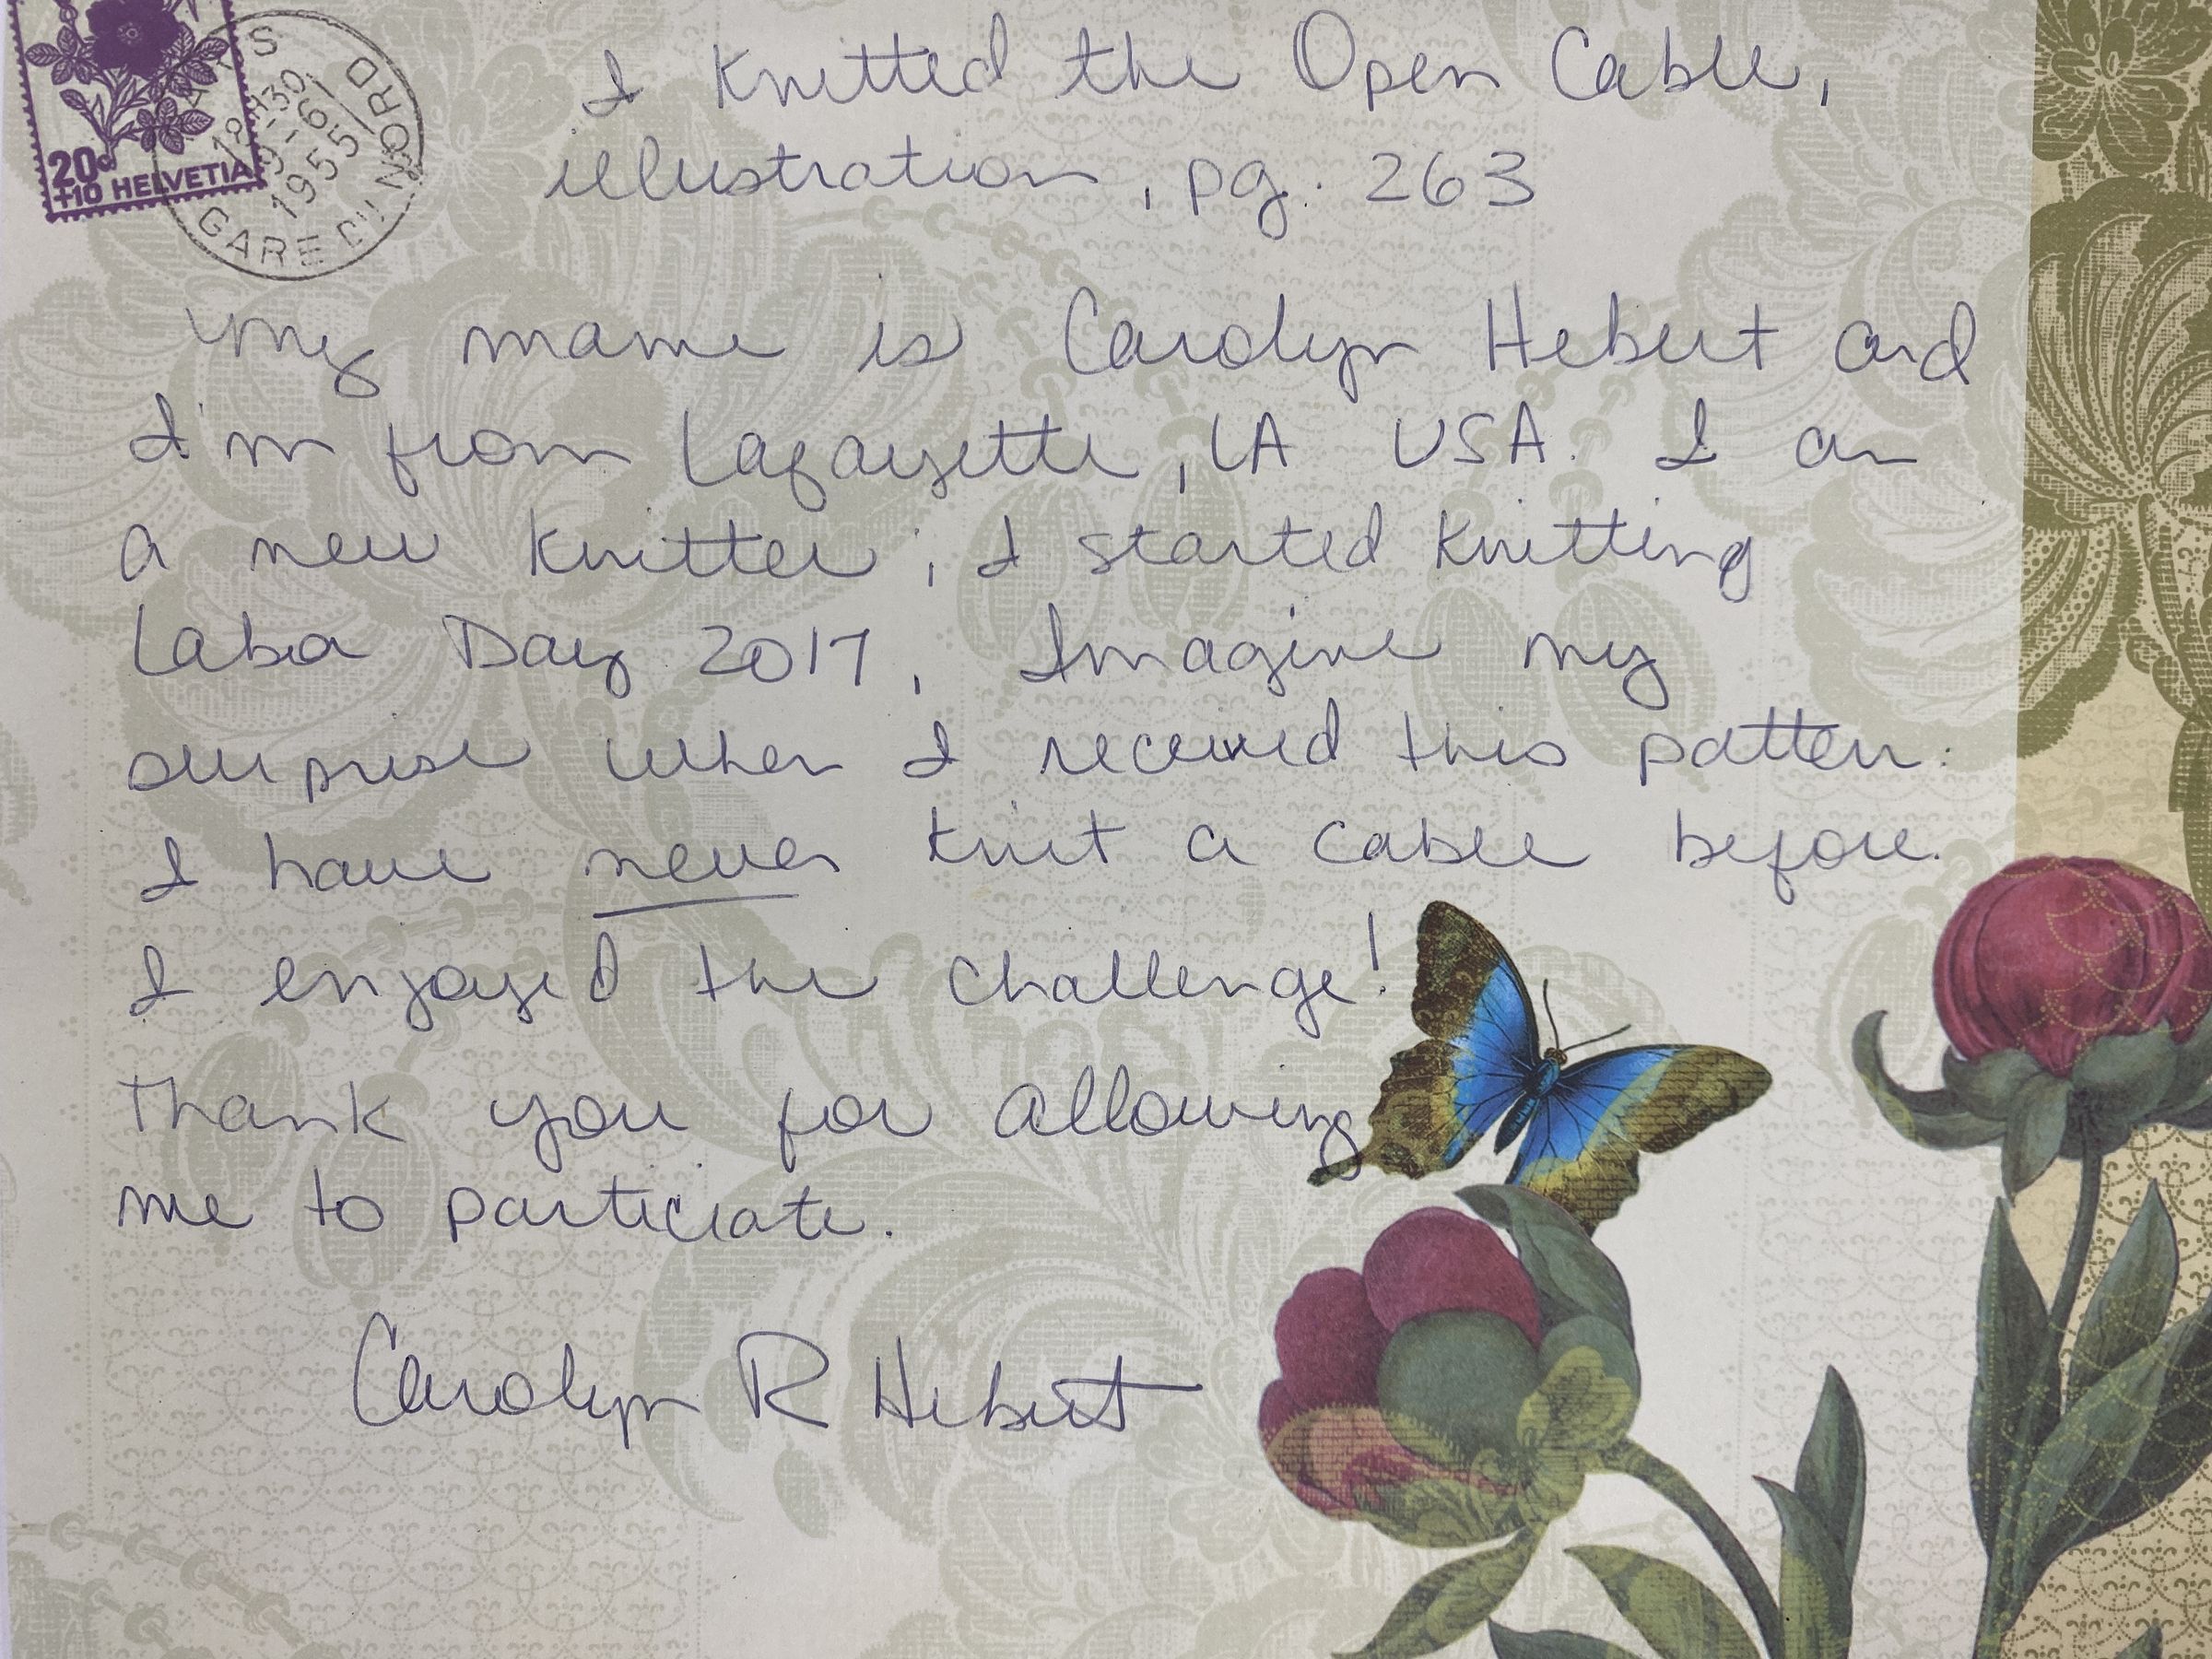 I knitted the Open Cable,
illustration, pg. 263
My name is Carolyn Hebert and
I'm from Lafayette, LA USA. I am
a new knitter; I started knitting
Labor Day 2017. Imagine my
surprise when I received this pattern:
I have never knit a cable before.
I enjoyed the challenge!
Thank you for allowing
me to particiate.
Carolyn R Hebert
20c
+10 HELVETIA
S
18H30
9-6
1955
GARE DU NORD